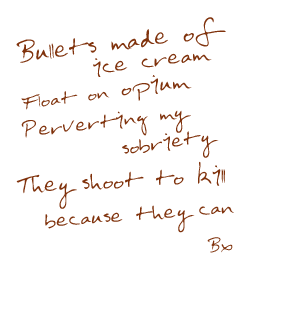 Bullets made of
ice cream
Float on opium
Perverting my
sobriety
They shoot to kill
because they can
Bx